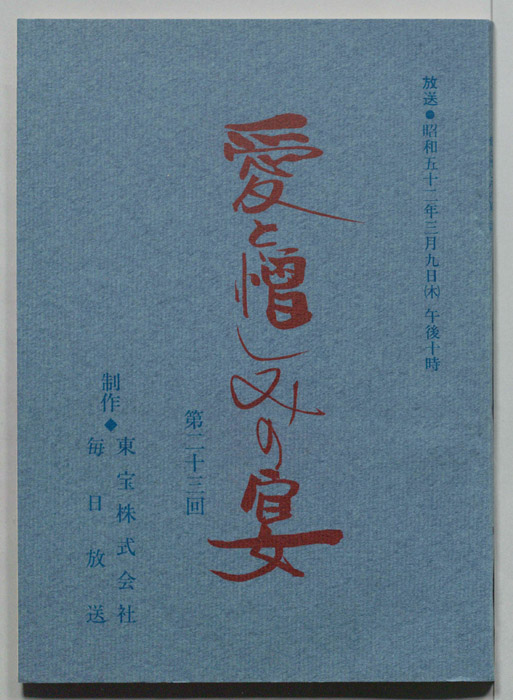 放送●昭和五十二年三月九日㈭ 午後十時
愛と憎しみの宴
第二十三回
制作◆東宝株式会社
毎日放送